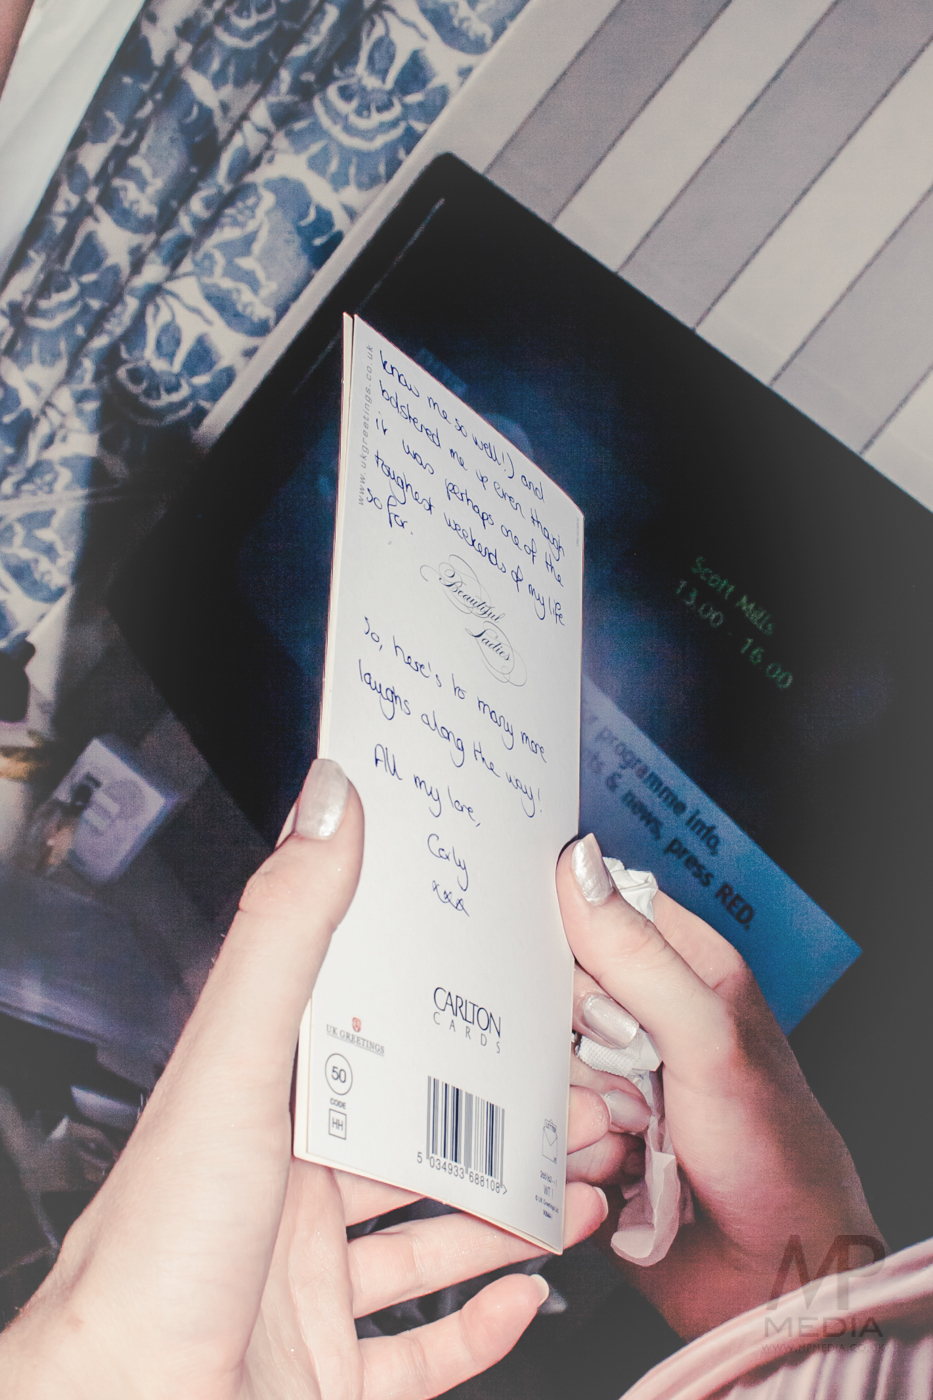 www.ukgreetings.co.uk
know me so well!) and
bolstered me up even though
it was perhaps one of the
toughest weekends of my life
so far.
Beautiful
Ladies
So, here's to many more
laughs along the way!
All my love,
Carly
xxx
CARLTON
CARDS
UK GREETINGS
50
CODE
HH
5 034933 688108 >
Scott Mills
13.00 - 16.00
programme info,
& news, press RED.
MP
MEDIA